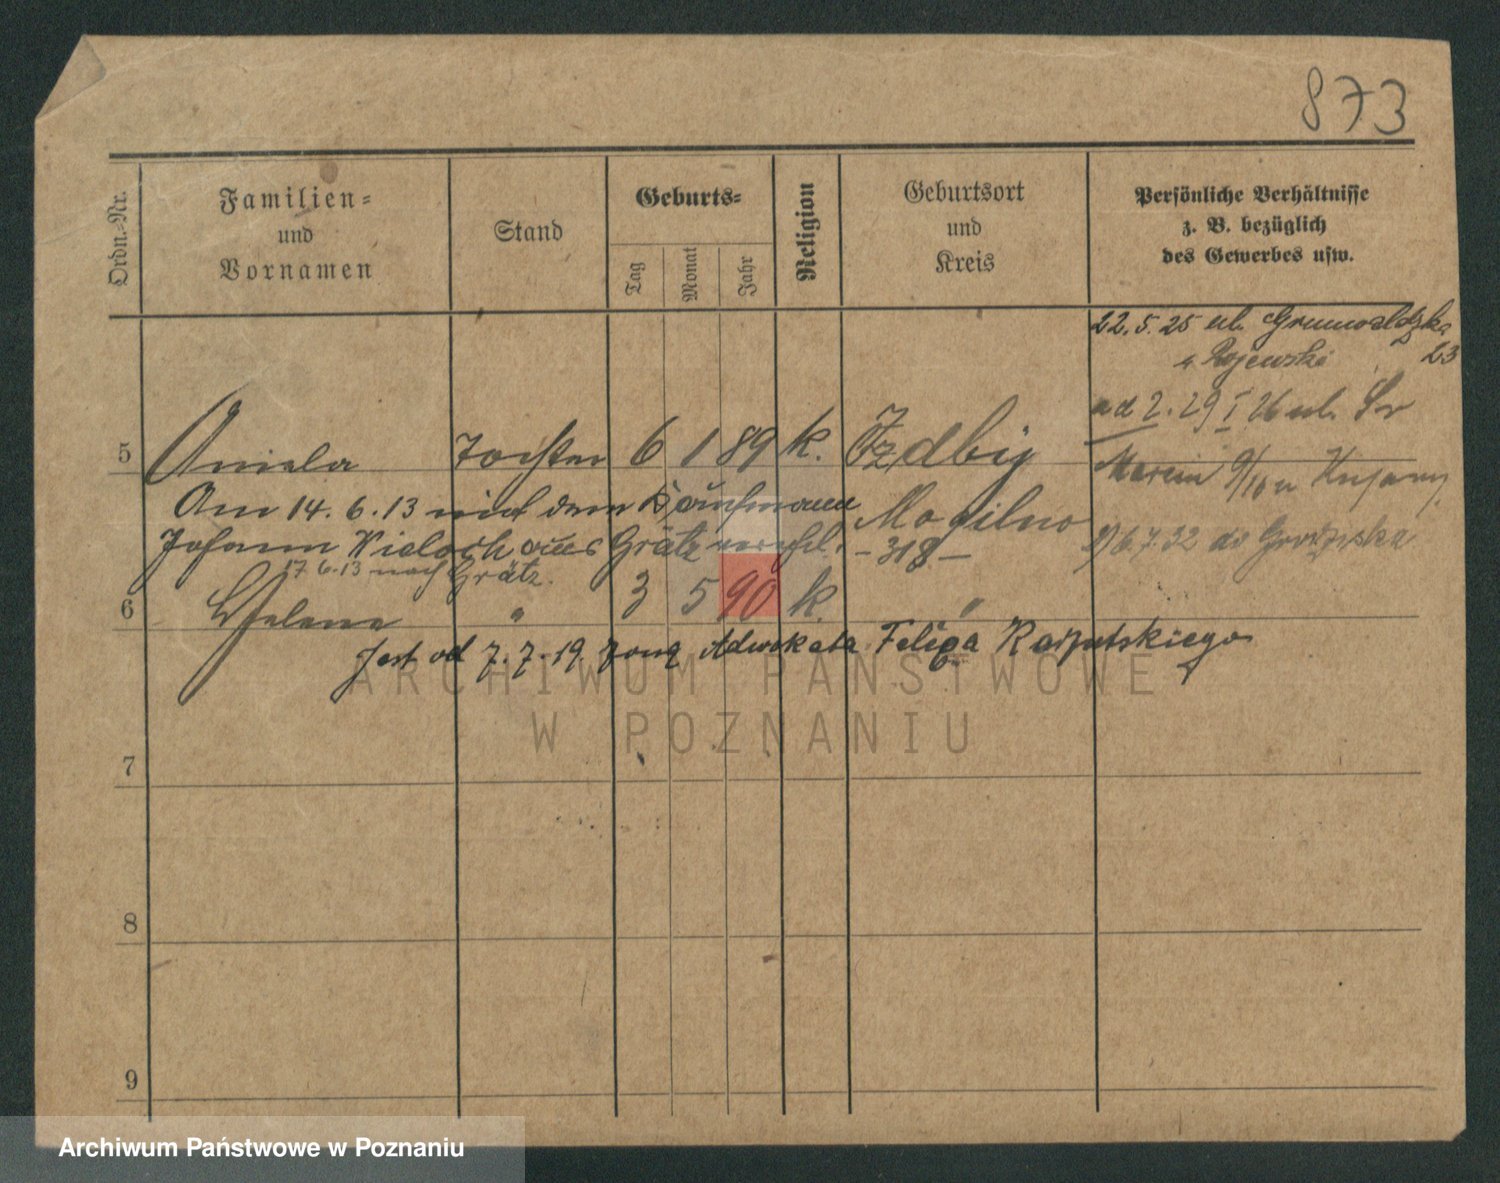 873
Ordn.-Nr.
Familien-
und
Vornamen
Stand
Geburts-
Tag
Monat
Jahr
Religion
Geburtsort
und
Kreis
Persönliche Verhältnisse
z. B. bezüglich
des Gewerbes usw.
22.5.25 ul. Grunwaldzka
u Rojewski 23
ad 2. 29 I 26 ul. Św
5 Aniela Tochter 6 1 89 k. Izdby
Marcin 9/10 u
Am 14.6.13 mit dem Kaufmann
Mogilno
Johann Wieloch aus Grätz verehel.
- 318 -
6.7.32 do Grodziska
17 6.13 nach Grätz.
6 Helene " 3 5 90 k. "
Jest od 7.7.19. żoną Adwokata Felipa
ARCHIWUM PAŃSTWOWE
W POZNANIU
7
8
9
Archiwum Państwowe w Poznaniu